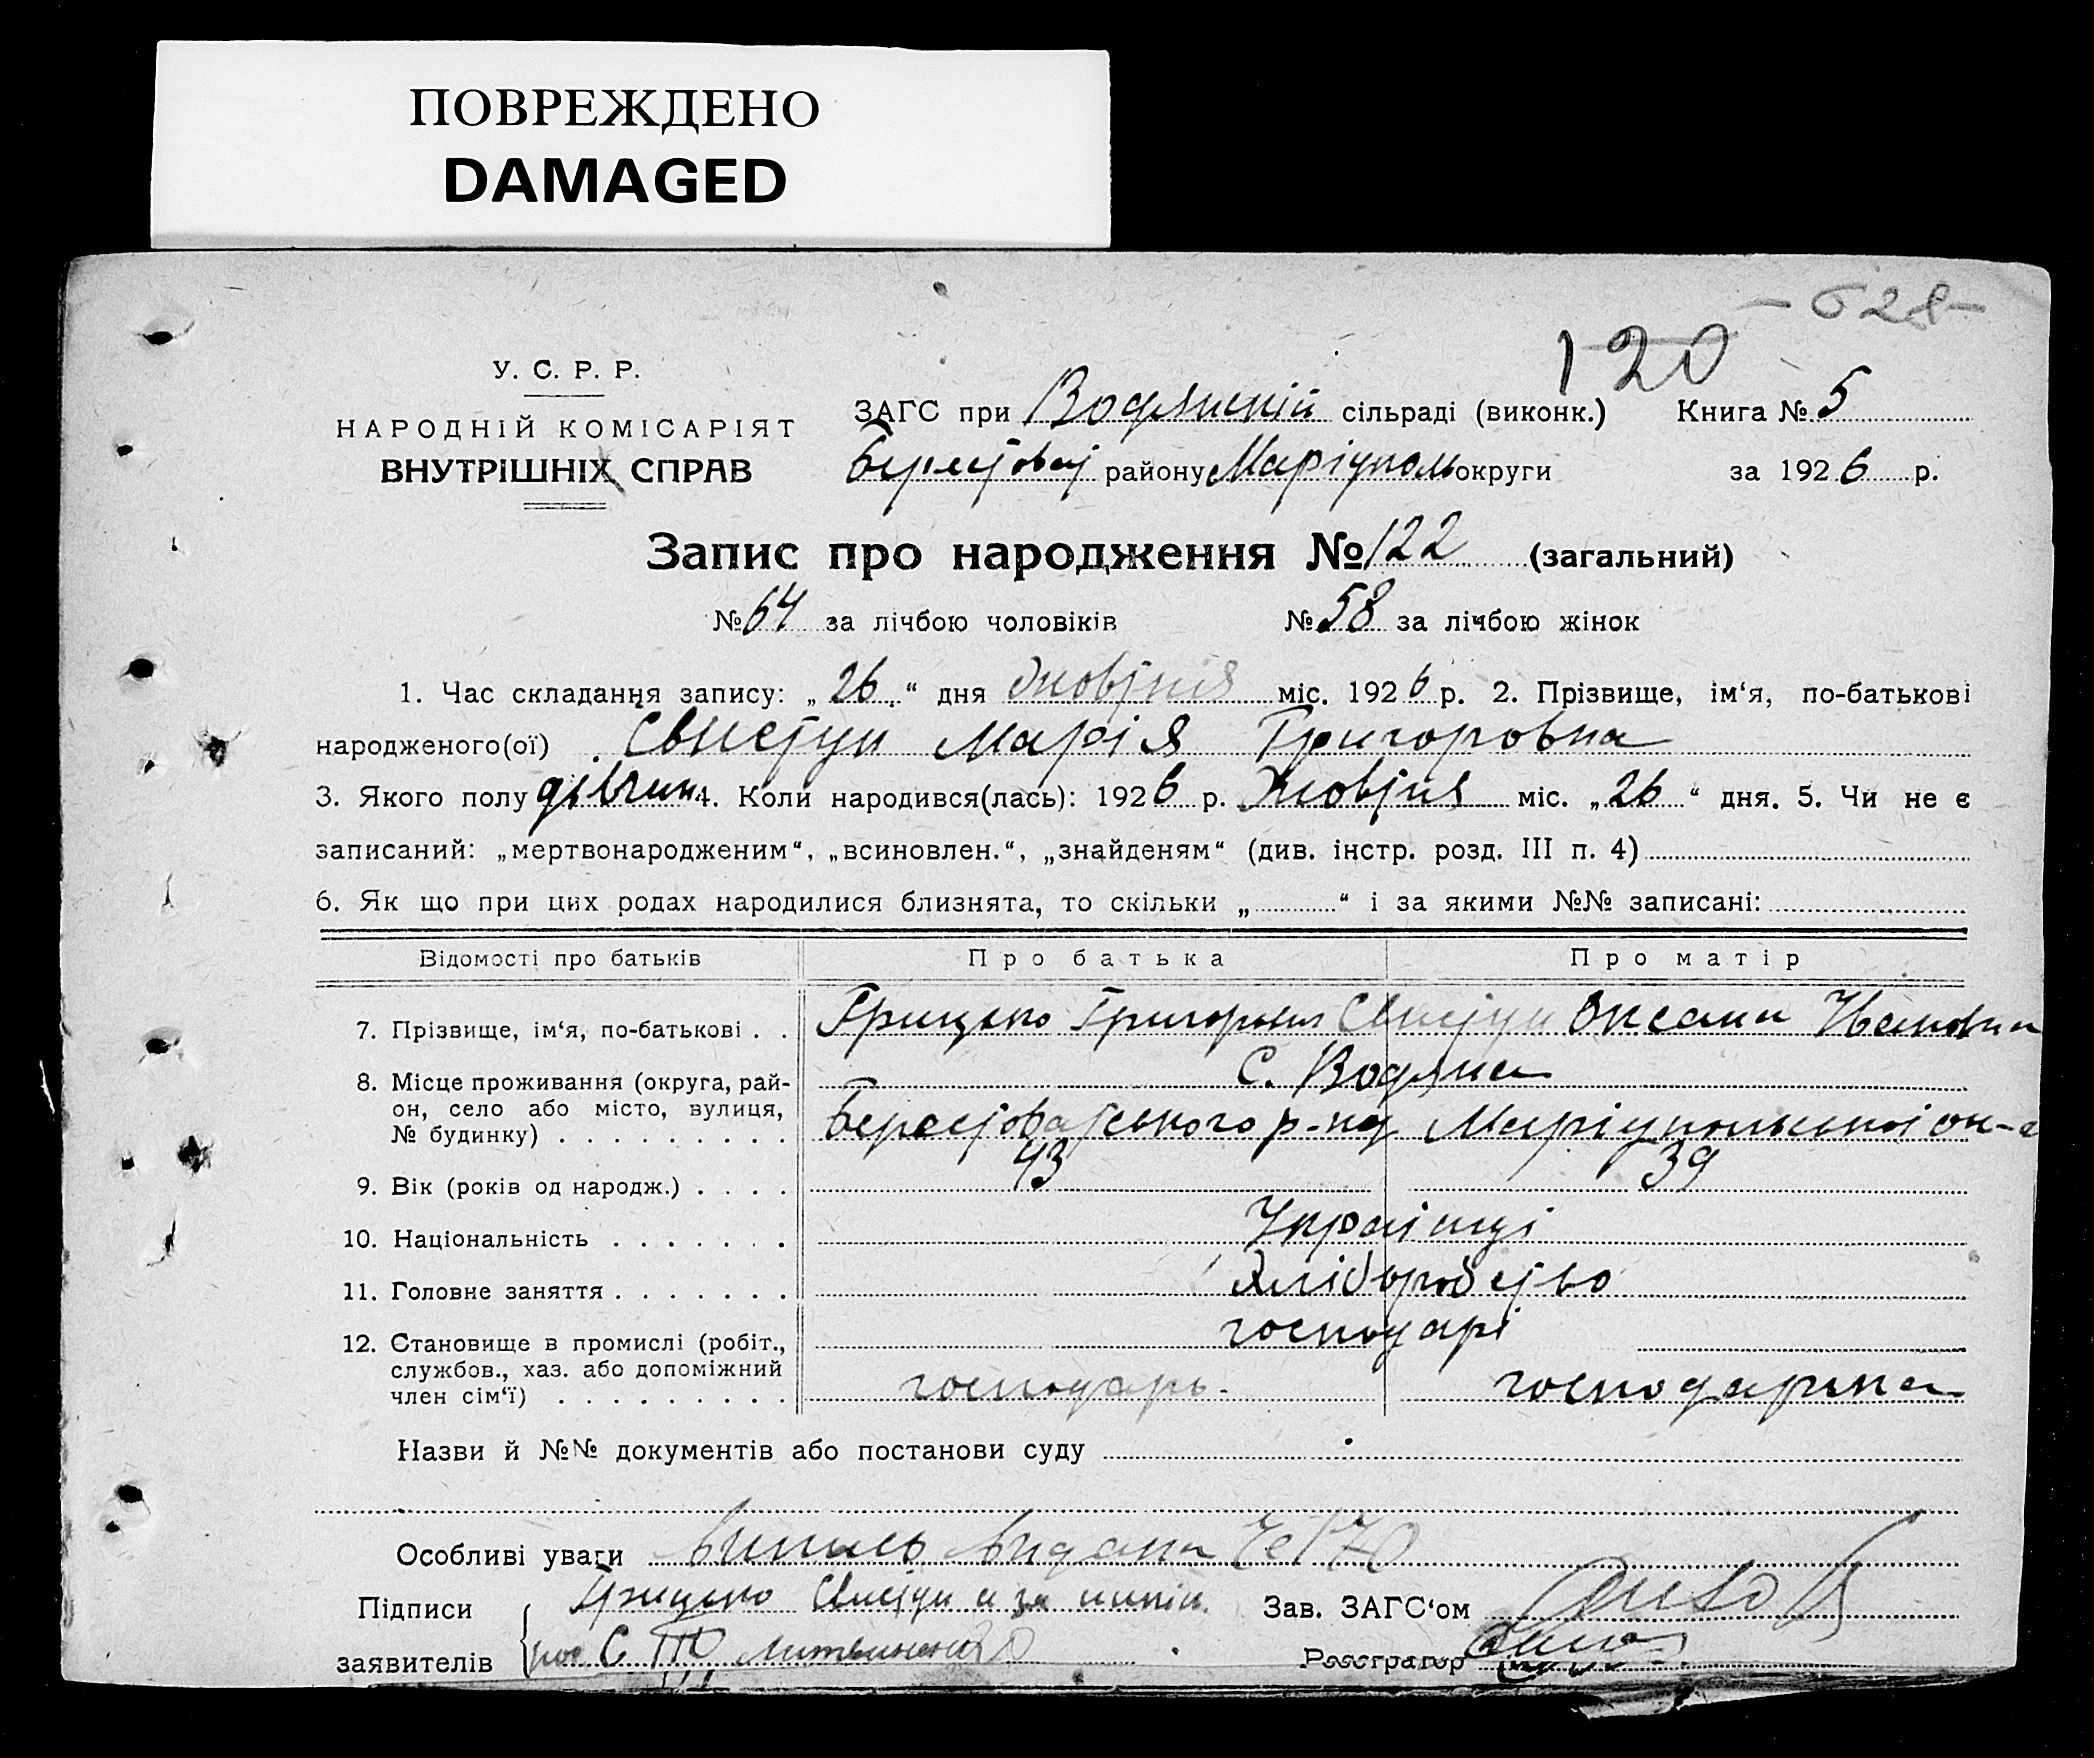 ПОВРЕЖДЕНО
DAMAGED
- 628 -
120
У. С. Р. Р.
НАРОДНІЙ КОМІСАРІЯТ
ВНУТРІШНІХ СПРАВ
ЗАГС при Водянській сільраді (виконк.) Книга № 5
району Маріуполь округи за 1926 р.
Запис про народження № 122 (загальний)
№ 64 за лічбою чоловіків № 58 за лічбою жінок
1. Час складання запису: „26“ дня Жовтня міс. 1926 р. 2. Прізвище, ім‘я, по-батькові
народженого(ої) Свистун Марія Григоровна
3. Якого полу дівчин 4. Коли народився(лась): 1926 р. Жовтня міс. „26“ дня. 5. Чи не є
записаний: „мертвонародженим“, „всиновлен.“, „знайденям“ (див. інстр. розд. III п. 4)
6. Як що при цих родах народилися близнята, то скільки „ “ і за якими №№ записані:
Відомості про батьків Про батька Про матір
7. Прізвище, ім‘я, по-батькові . . Грицько Григорович Свистун Оксана Ивановна
8. Місце проживання (округа, рай- с. Водяна
он, село або місто, вулиця,
№ будинку) . . . . . . . . . р-на Маріупольської ок-и
9. Вік (років од народж.) . . . . 43 39
10. Національність . . . . . . . Українці
11. Головне заняття . . . . . . . Хліборобство
12. Становище в промислі (робіт., господарі
службов., хаз. або допоміжний
член сім‘ї) . . . . . . . . . господарь. господарька
Назви й №№ документів або постанови суду
Особливі уваги випись видана № 170
Підписи Грицько Свистун а за
заявителів С. Литвиненко
Зав. ЗАГС‘ом
Реєстратор